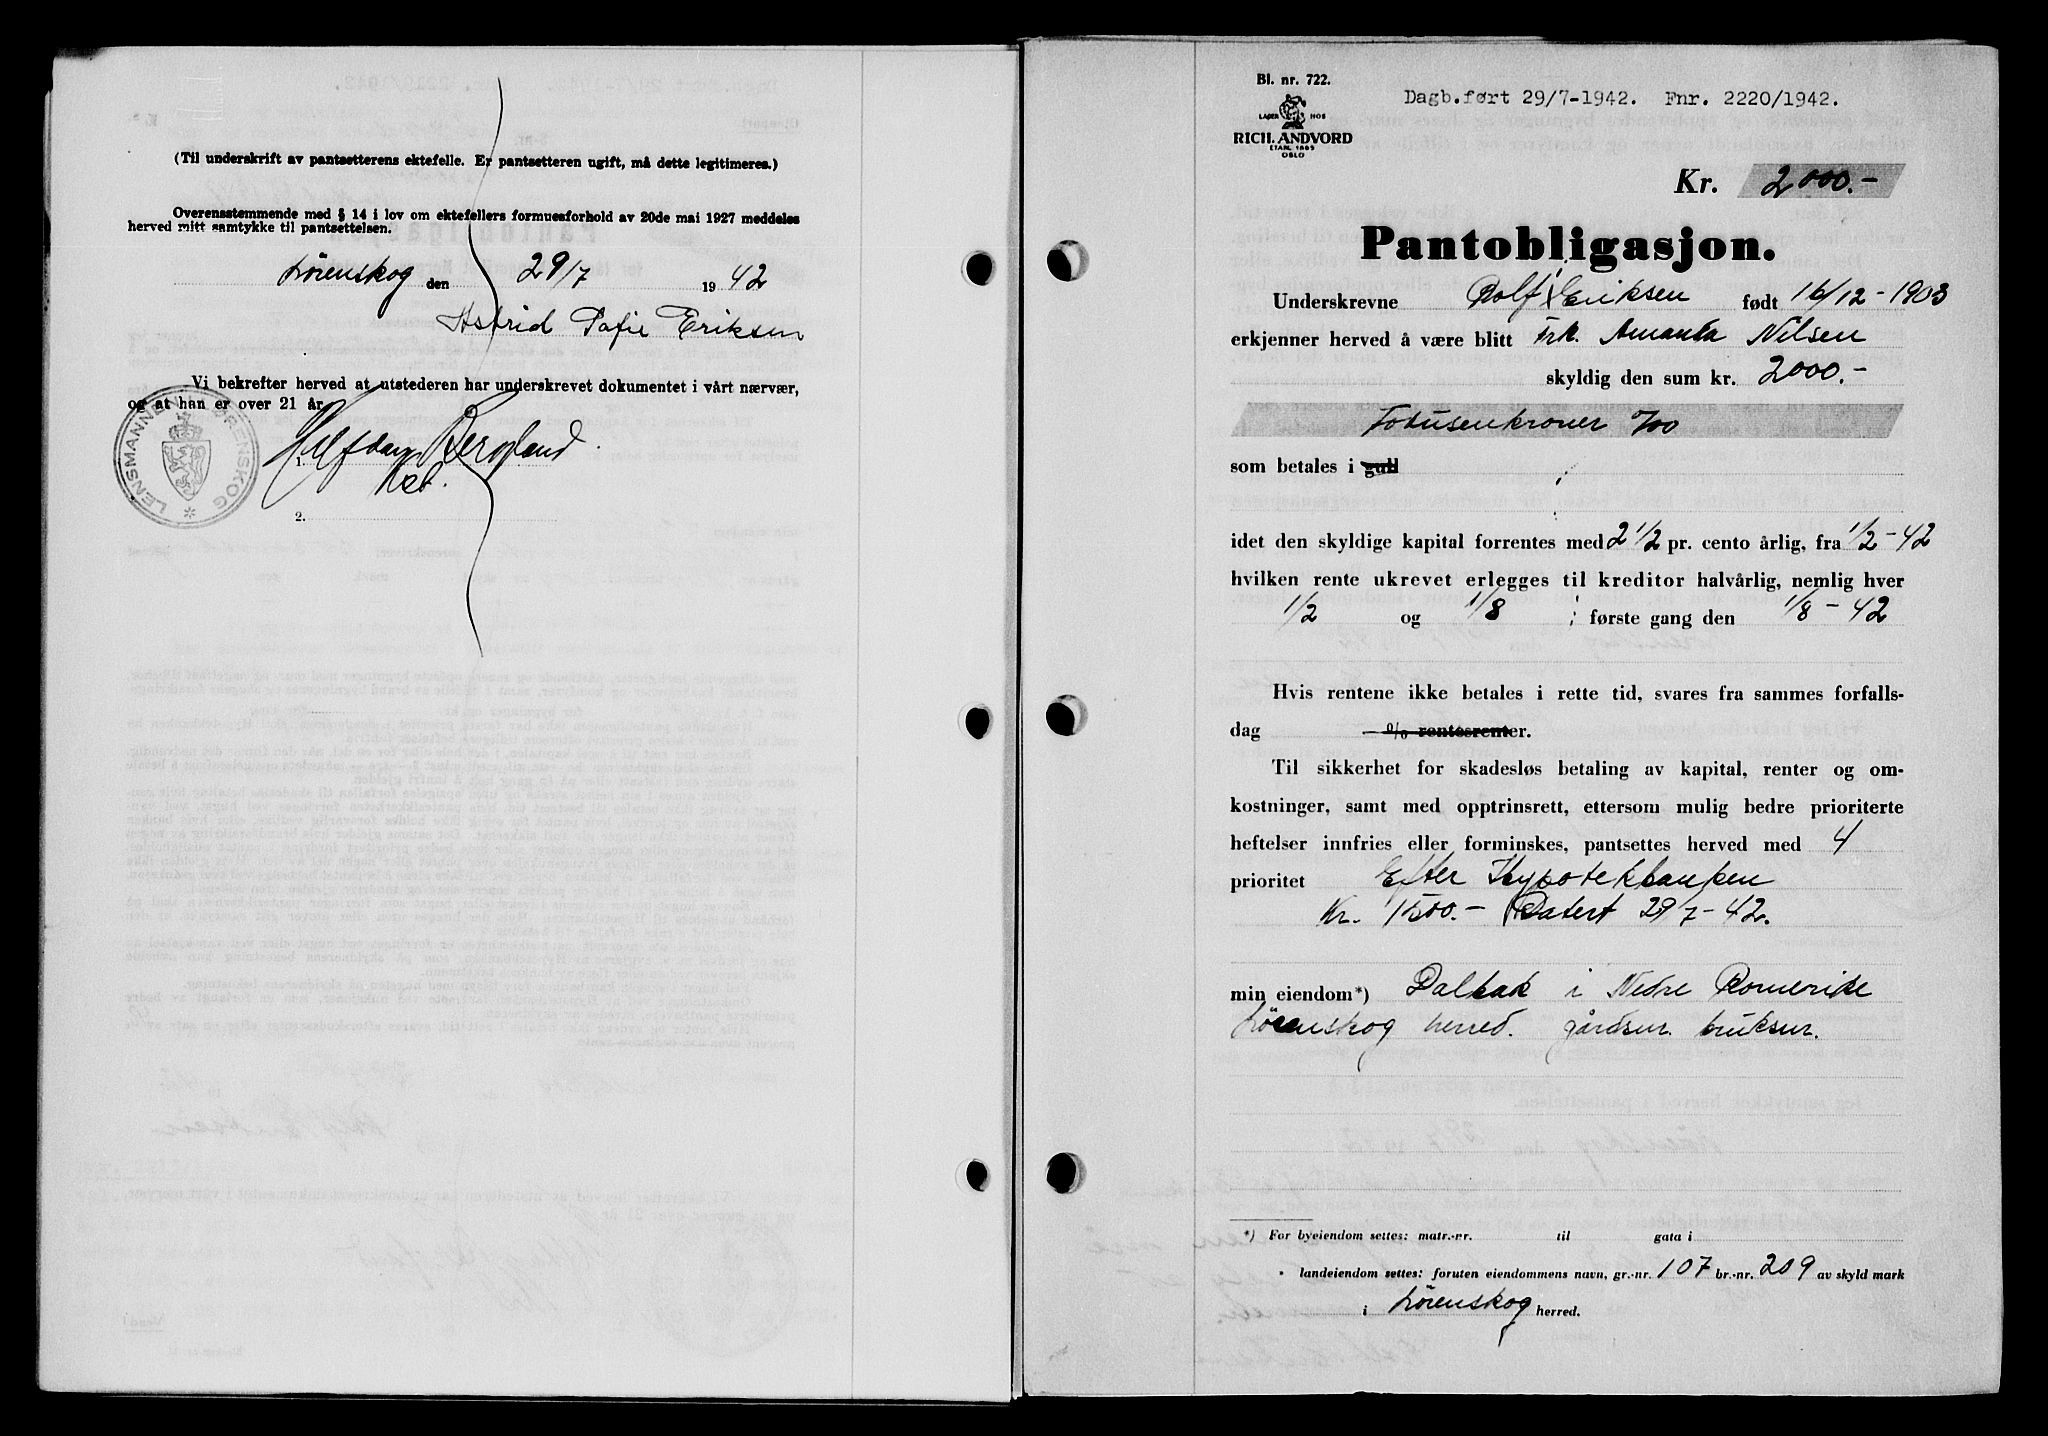 (Til underskrift av pantsetterens ektefelle. Er pantsetteren ugift, må dette legitimeres.)
Overensstemmende med § 14 i lov om ektefellers formuesforhold av 20de mai 1927 meddeles
herved mitt samtykke til pantsettelsen.
Lørenskog den 29/7 1942
Astrid Sofie Eriksen
Vi bekrefter herved at utstederen har underskrevet dokumentet i vårt nærvær,
og at han er over 21 år.
1. Halfdan Bergland
2.
LENSMANNEN I LØRENSKOG
Bl. nr. 722.
LAGER HOS
RICH. ANDVORD
ETABL. 1865
OSLO
Dagb.ført 29/7-1942. Fnr. 2220/1942.
Kr. 2000.-
Pantobligasjon.
Underskrevne Rolf Eriksen født 16/12-1903
erkjenner herved å være blitt Frk. Amanda Nilsen
skyldig den sum kr. 2000.-
Totusenkroner %00
som betales i gull
;
idet den skyldige kapital forrentes med 2 1/2 pr. cento årlig, fra 1/2-42
hvilken rente ukrevet erlegges til kreditor halvårlig, nemlig hver
1/2 og 1/8 ; første gang den 1/8-42
Hvis rentene ikke betales i rette tid, svares fra sammes forfalls-
dag % rentesrenter.
Til sikkerhet for skadesløs betaling av kapital, renter og om-
kostninger, samt med opptrinsrett, ettersom mulig bedre prioriterte
heftelser innfries eller forminskes, pantsettes herved med 4
prioritet Efter Hypotekbanken
Kr. 1500.- Datert 29/7-42.
min eiendom*) Dalbak i Nedre Romerike
Lørenskog herred. gårdsnr. bruksnr.
*) For byeiendom settes: matr.-nr. til gata i
" landeiendom settes: foruten eiendommens navn, gr.-nr. 107 br.-nr. 209 av skyld mark
i Lørenskog herred.